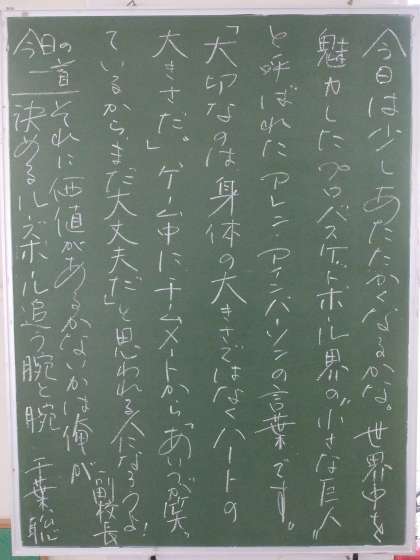 今日は少しあたたかくなるかな。世界中を
魅了したプロバスケットボール界の“小さな巨人”
と呼ばれたアレン・アイバーソンの言葉です。
「大切なのは身体の大きさではなくハートの
大きさだ。」ゲーム中にチームメートから「あいつが
ているから、まだ大丈夫だ」と思われる人になろうよ!
副校長
今日の一首
それに価値があるかないかは俺が
決めるルーズボール追う腕と腕 千葉聡